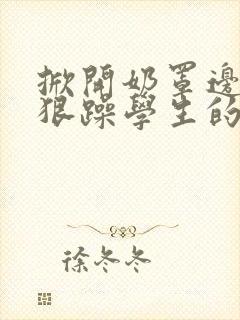 掀開奶罩邊
狠躁學生的
徐冬冬